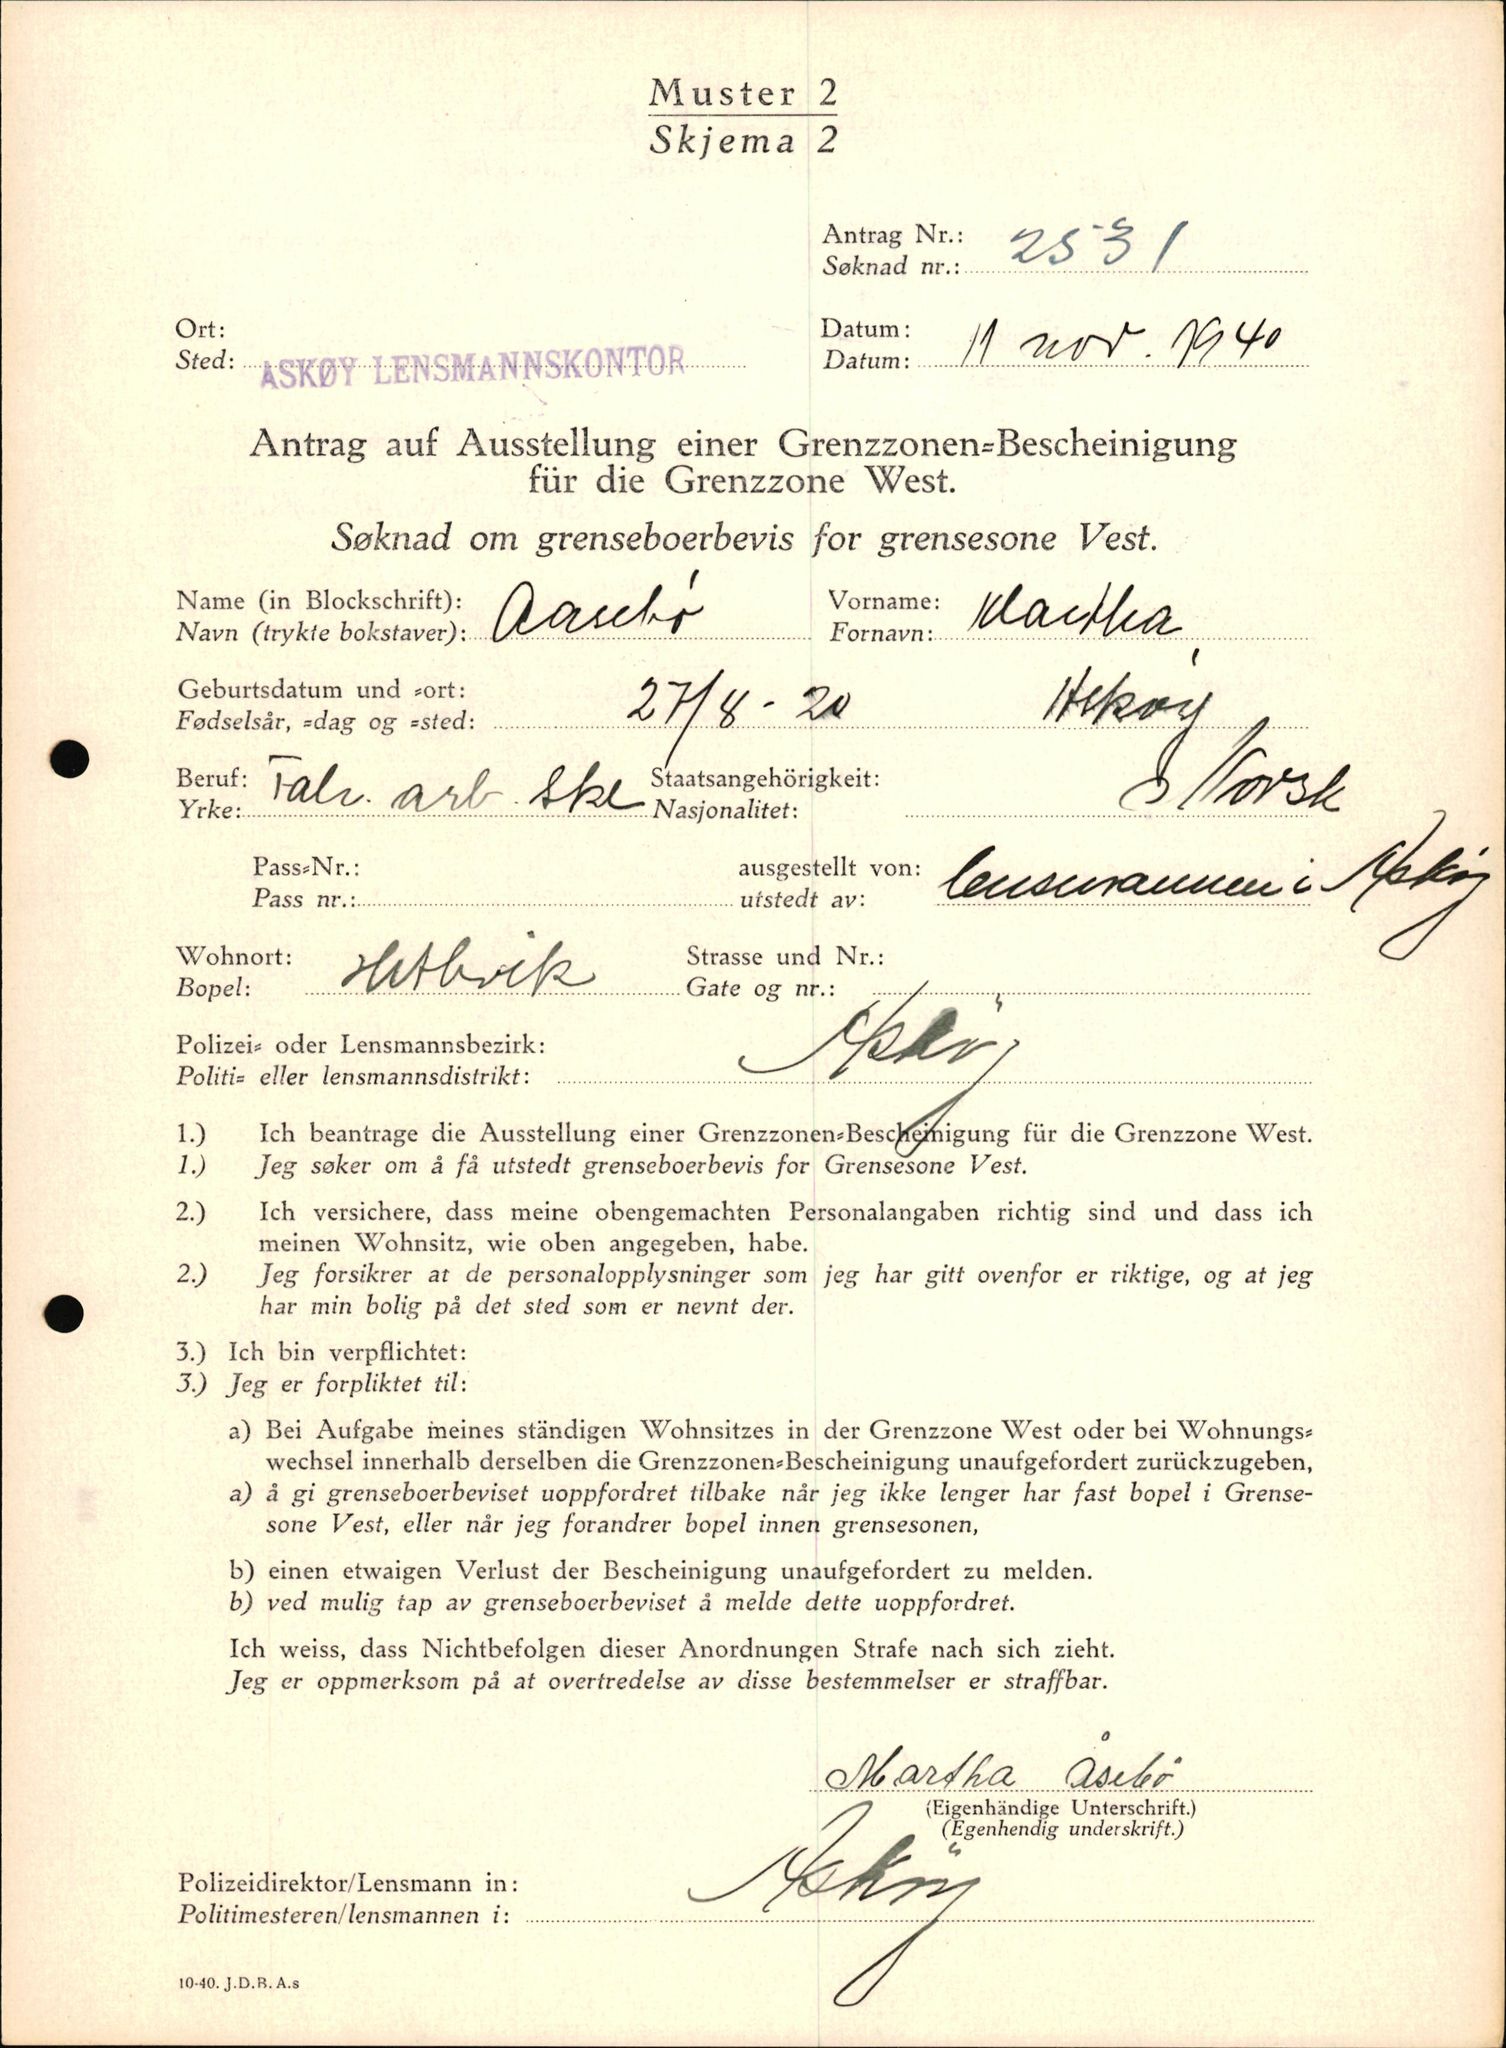 Muster 2
Skjema 2
Antrag Nr.:
Søknad nr.: 2531
Ort:
Sted: ASKØY LENSMANNSKONTOR
Datum:
Datum: 11 nov. 1940
Antrag auf Ausstellung einer Grenzzonen=Bescheinigung
für die Grenzzone West.
Søknad om grenseboerbevis for grensesone Vest.
Name (in Blockschrift): Vorname:
Navn (trykte bokstaver): Aasebö Fornavn: Martha
Geburtsdatum und =ort:
Fødselsår, =dag og =sted: 27/8 - 20 Askøy
Beruf: Staatsangehörigkeit:
Yrke: Fabr. arb. Nasjonalitet: Norsk
Pass=Nr.: ausgestellt von:
Pass nr.: utstedt av: lensmannen i Askøy
Wohnort: Strasse und Nr.:
Bopel: Gate og nr.:
Polizei= oder Lensmannsbezirk:
Politi= eller lensmannsdistrikt: Askøy
1.) Ich beantrage die Ausstellung einer Grenzzonen=Bescheinigung für die Grenzzone West.
1.) Jeg søker om å få utstedt grenseboerbevis for Grensesone Vest.
2.) Ich versichere, dass meine obengemachten Personalangaben richtig sind und dass ich
meinen Wohnsitz, wie oben angegeben, habe.
2.) Jeg forsikrer at de personalopplysninger som jeg har gitt ovenfor er riktige, og at jeg
har min bolig på det sted som er nevnt der.
3.) Ich bin verpflichtet:
3.) Jeg er forpliktet til:
a) Bei Aufgabe meines ständigen Wohnsitzes in der Grenzzone West oder bei Wohnungs=
wechsel innerhalb derselben die Grenzzonen=Bescheinigung unaufgefordert zurückzugeben,
a) å gi grenseboerbeviset uoppfordret tilbake når jeg ikke lenger har fast bopel i Grense-
sone Vest, eller når jeg forandrer bopel innen grensesonen,
b) einen etwaigen Verlust der Bescheinigung unaufgefordert zu melden.
b) ved mulig tap av grenseboerbeviset å melde dette uoppfordret.
Ich weiss, dass Nichtbefolgen dieser Anordnungen Strafe nach sich zieht.
Jeg er oppmerksom på at overtredelse av disse bestemmelser er straffbar.
Martha Åsebö
(Eigenhändige Unterschrift.)
(Egenhendig underskrift.)
Polizeidirektor/Lensmann in:
Politimesteren/lensmannen i: Askøy
10-40. J.D.B. A.s